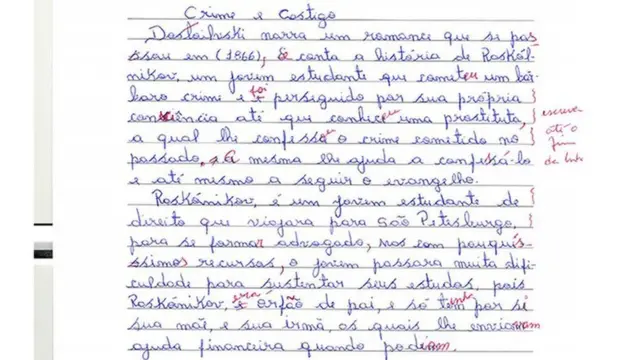 Crime e Castigo
Dostoihviski narra um romance que se pas
ssou em (1866), & conta a história de Raskól-
nikov, um jovem estudante que cometeu um bár-
baro crime e foi perseguido por sua própria
consciência até que conheceu uma prostituta, escrever
a qual lhe confessou o crime cometido no até o
passado, e a mesma lhe ajuda a confessá-lo fim
e até mesmo a seguir o evangelho. da linha
Roskánikov, é um jovem estudante de
direito que viajara para São Petesburgo,
para se formar advogado, nos com pouquís-
ssimos recursos, o jovem passara muita difi-
culdade para sustentar seus estudos, pois
Roskánikov, era órfão de pai, e só tem por si
sua mãe, e sua irmã, os quais lhe enviavam
ajuda financeira quando podiam.